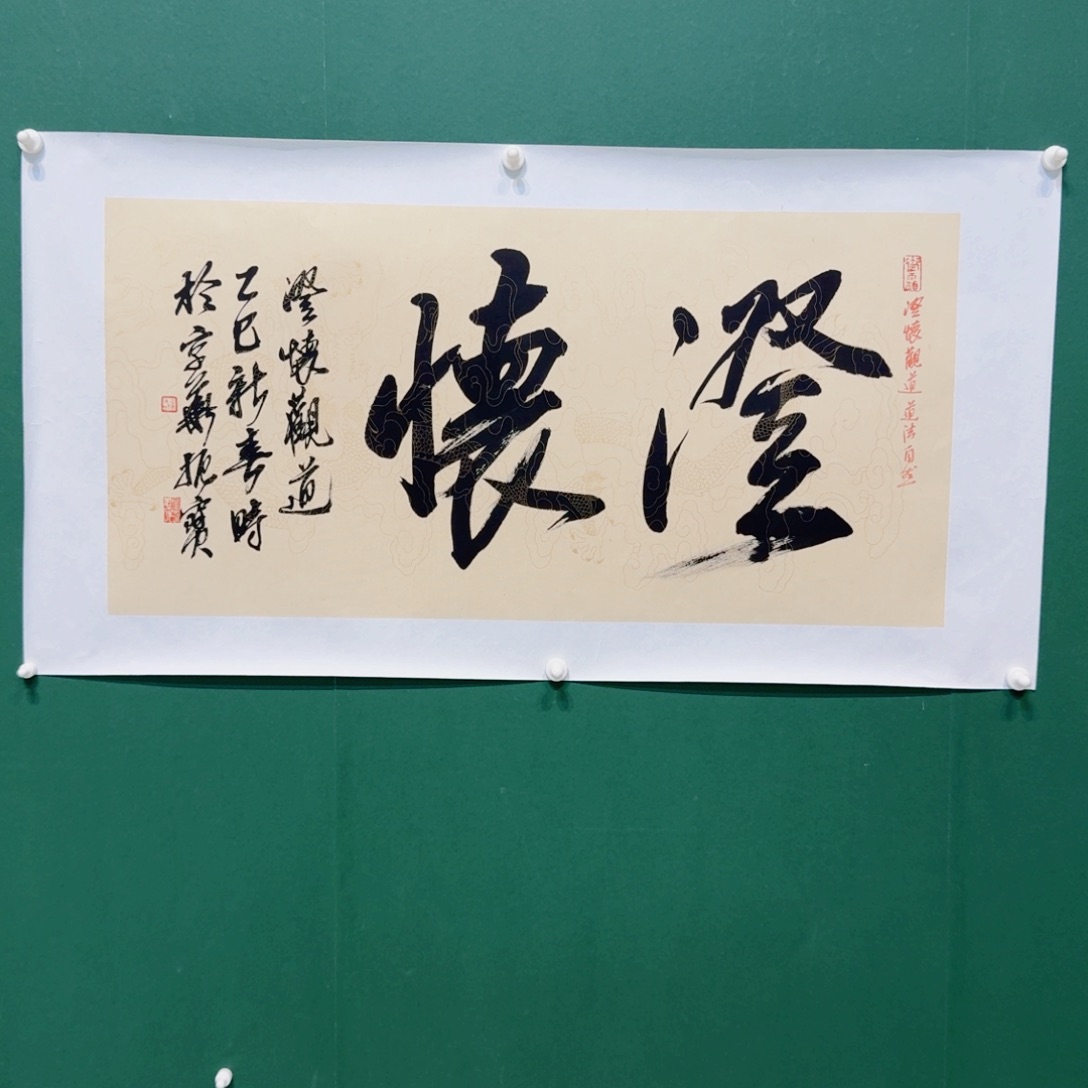 澄懷觀道 道法自然
澄懷
澄懷觀道
乙巳新春時
於京華振寶